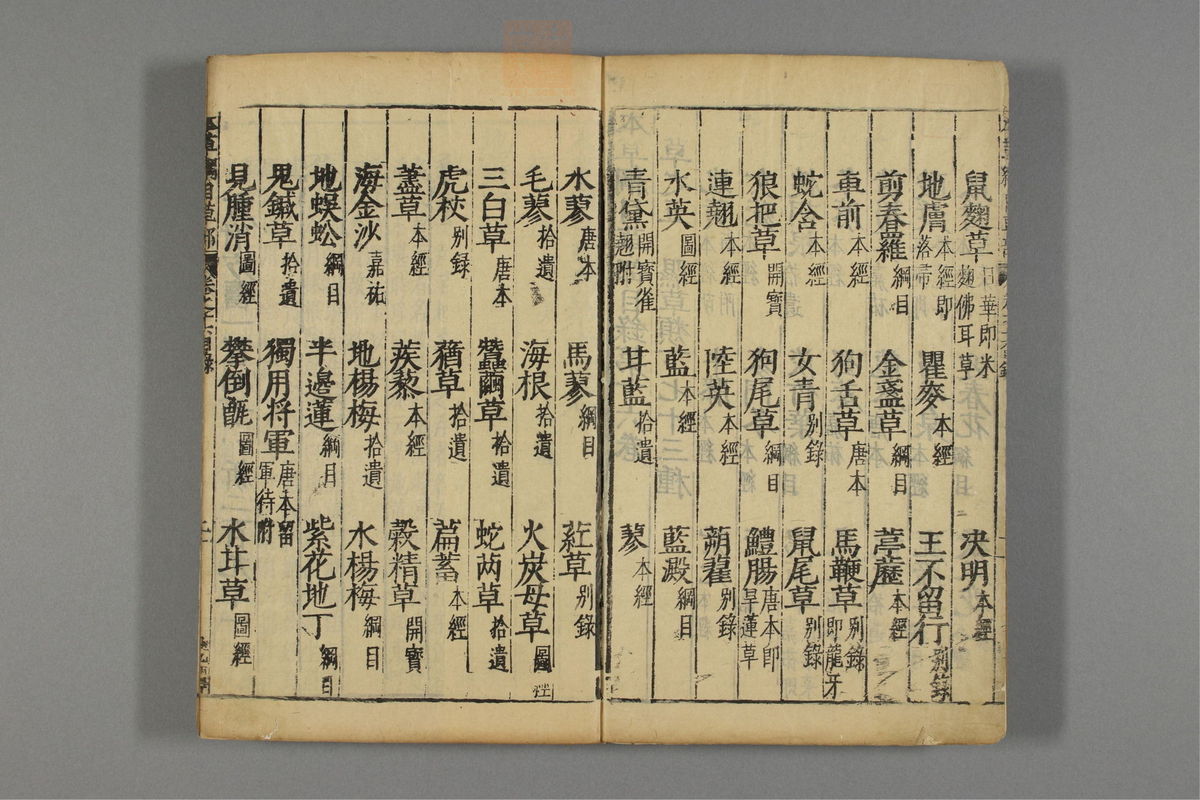 鼠麴草 日華即米麴佛耳草 决明 本經
地膚 本經即落帚 瞿麥 本經 王不留行 别録
剪春羅 綱目 金盞草 綱目 葶藶 本經
車前 本經 狗舌草 唐本 馬鞭草 别録即龍牙
蛇含 本經 女青 别録 鼠尾草 别録
狼把草 開寳 狗尾草 綱目 鱧腸 唐本即旱蓮草
連翹 本經 陸英 本經 蒴藋 别錄
水英 圖經 藍 本經 藍澱 綱目
青黛 開寳雀翹附 甘藍 拾遺 蓼 本經
水蓼 唐本 馬蓼 綱目 葒草 别錄
毛蓼 拾遺 海根 拾遺 火炭母草 圖經
三白草 唐本 蠶繭草 拾遺 蛇䓣草 拾遺
虎杖 别録 蕕草 拾遺 萹蓄 本經
藎草 本經 蒺藜 本經 穀精草 開寳
海金沙 嘉祐 地楊梅 拾遺 水楊梅 綱目
地蜈蚣 綱目 半邊蓮 綱目 紫花地丁 綱目
鬼鍼草 拾遺 獨用将軍 唐本留軍待附
見腫消 圖經 攀倒甑 圖經 水甘草 圖經